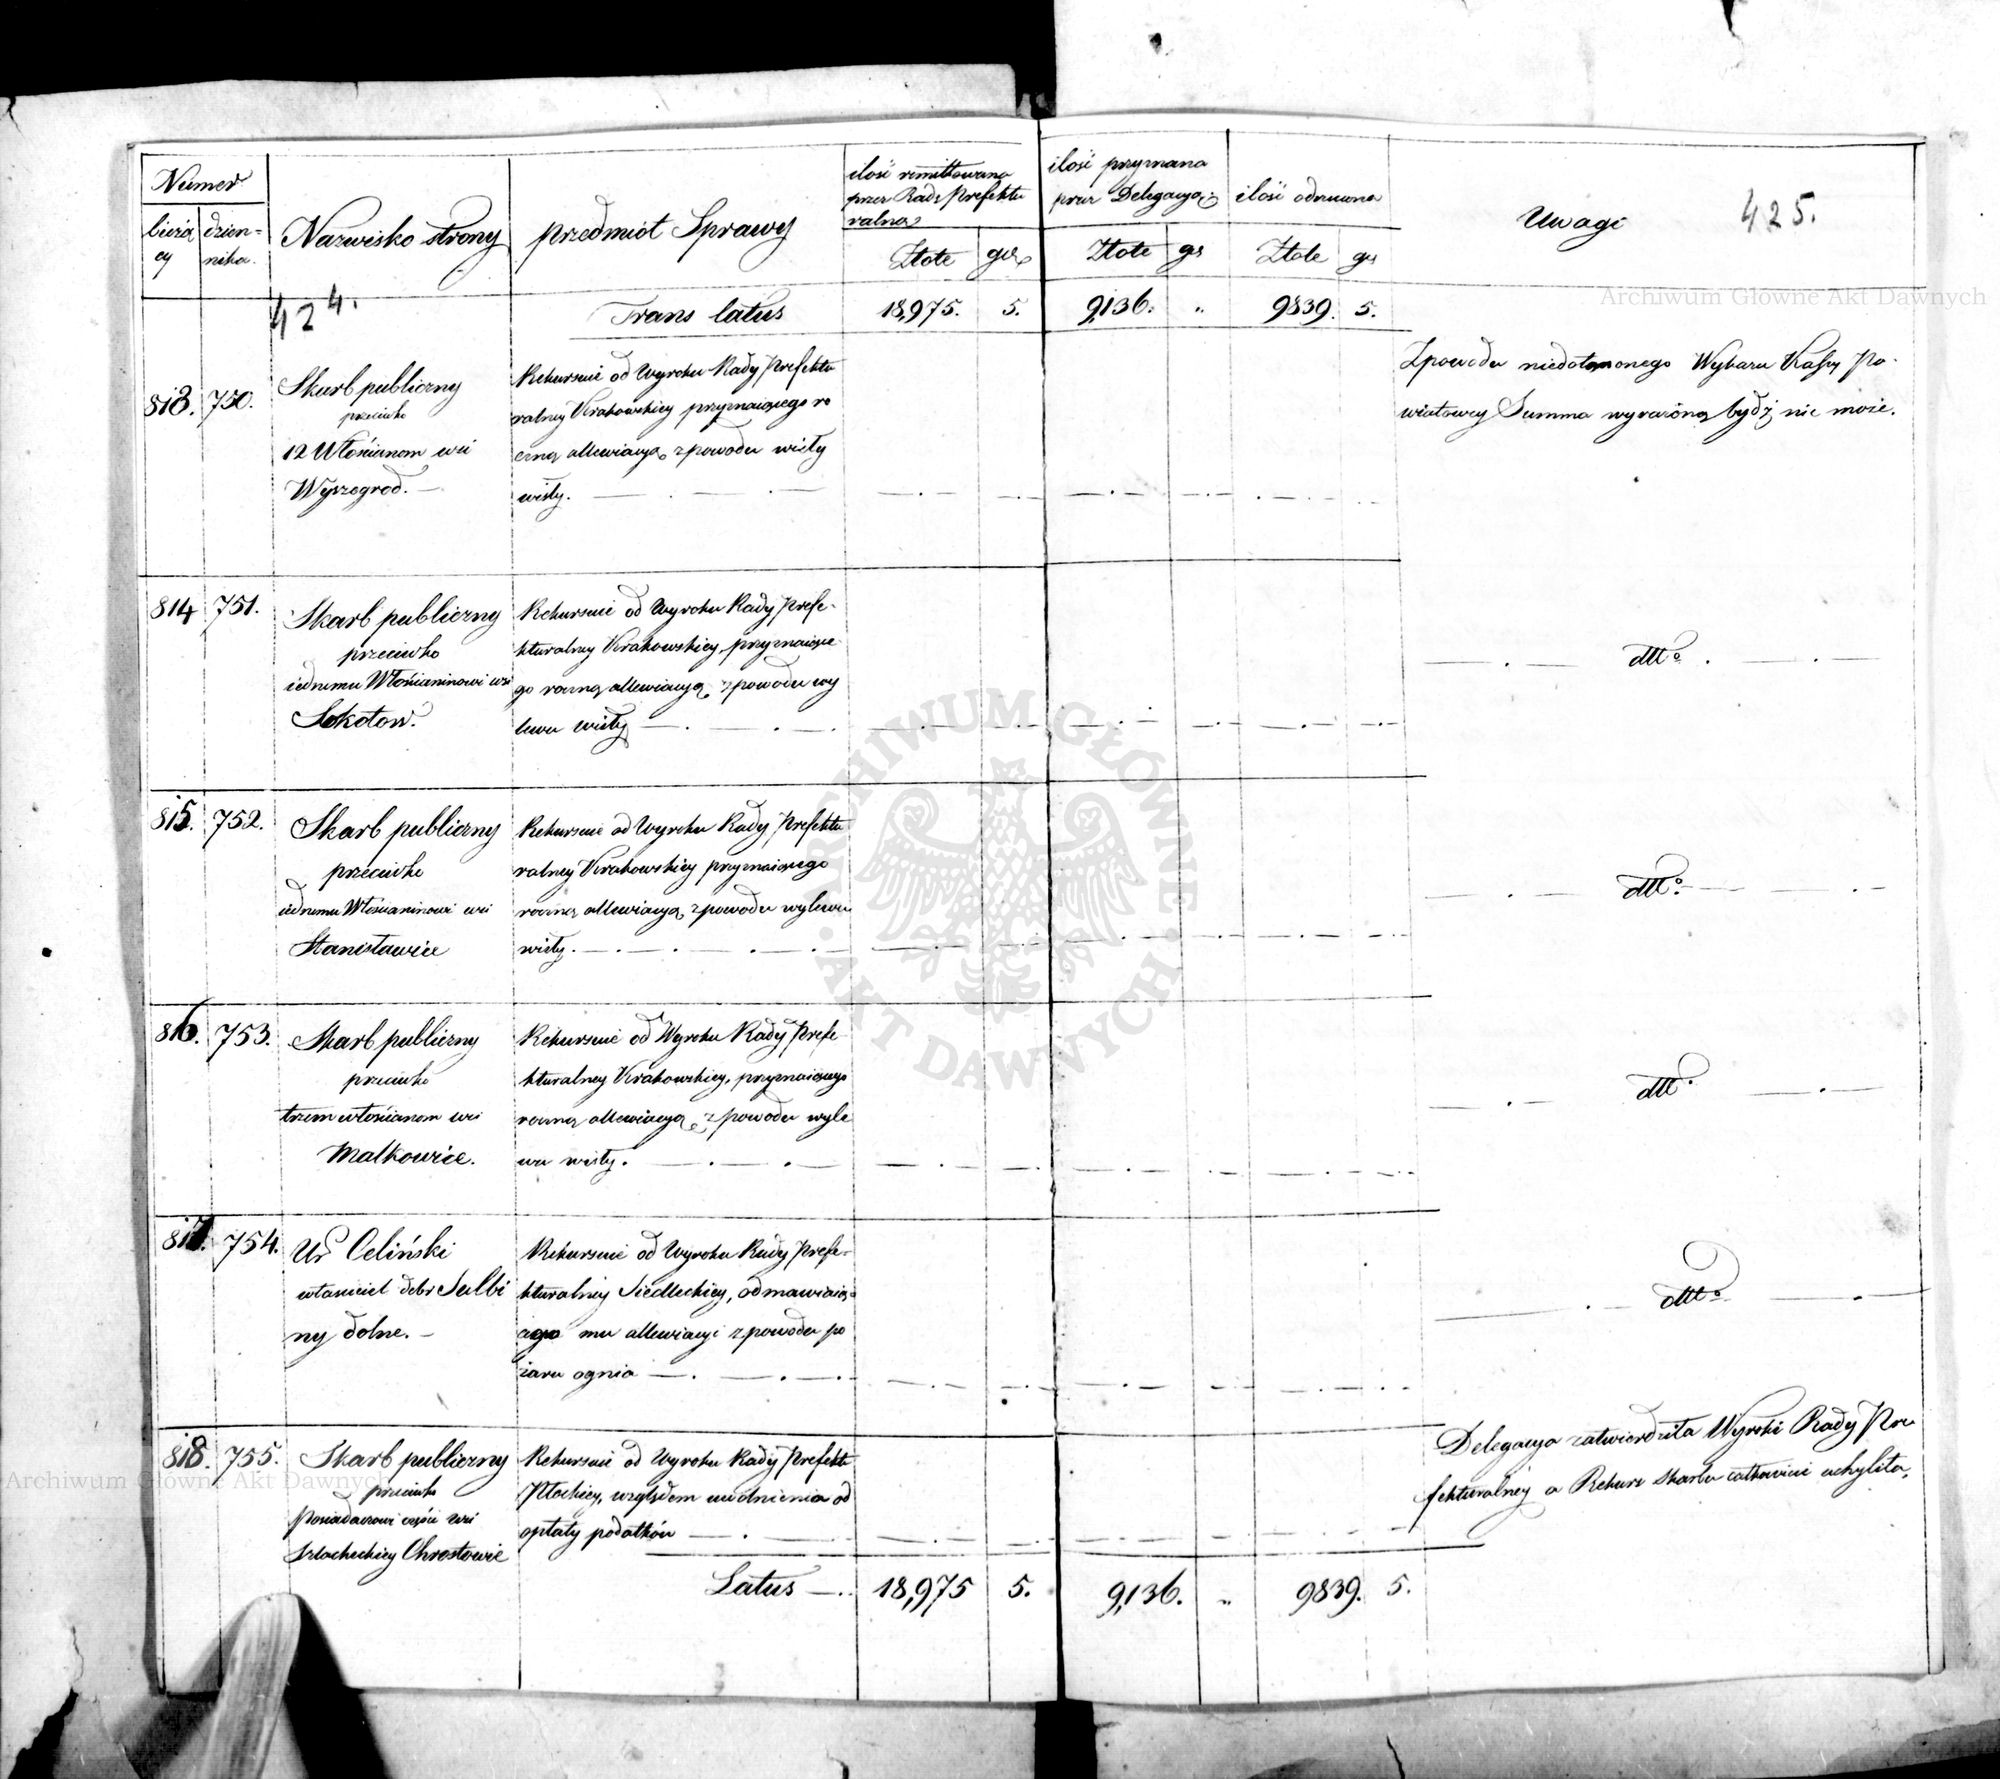 Numer
bieżą dzien=
cy nika.
Nazwisko strony
przedmiot Sprawy
ilość remittowana
przez Radę Prefektu
ralną
Złote gr.
ilość przyznana
przez Delegacyą
Złote gr
ilość odsunona
Złote gr
Uwagi
425.
424.
Trans latus 18,975. 5. 9,136. „ 9839. 5.
813. 750.
Skarb publiczny
przeciwko
12 Włościanom wsi
Wyszogrod. —
Rekursuie od Wyroku Rady Prefektu
ralney Krakowskiey przyznaiącego ro
czną allewiacyą z powodu wisły
wisły.
Z powodu niedołączonego Wykazu Kassy Po-
wiatowey Summa wyrażoną bydź nie może.
814 751.
Skarb publiczny
przeciwko
iednemu Włościaninowi wsi
Sokołow.
Rekursuie od Wyroku Rady Prefe-
kturalney Krakowskiey, przyznaiące
go roczną allewiacyą, z powodu wy
lewu wisły
dtto.
815. 752.
Skarb publiczny
przeciwko
iednemu Włościaninowi wsi
Stanisławice
Rekursuie od Wyroku Rady Prefektu
ralney Krakowskiey przyznaiącego
roczną allewiacyą z powodu wylewu
wisły.
dtto.
816. 753.
Skarb publiczny
przeciwko
trzem włościanom wsi
Malkowice.
Rekursuie od Wyroku Rady Prefe
kturalney Krakowskiey, przyznaiącego
roczną allewiacyą, z powodu wyle
wu wisły.
dtto.
817. 754.
Ur Celiński
właściciel dóbr Sulbi
ny dolne. —
Rekursuie od Wyroku Rady Prefe-
kturalney Siedleckiey, odmawiaią
cego mu allewiacyi z powodu po
żaru ognia
dtto
818. 755.
Skarb publiczny
przeciwko
Posiadaczowi części wsi
Szlacheckiey Chrostowie
Rekursuie od Wyroku Rady Prefektu
Płockiey, względem uwolnienia od
opłaty podatków
Delegacya zatwierdziła Wyroki Rady Pre
fekturalney a Rekurs Skarbu całkowicie uchyliła.
Latus — . 18,975 5. 9,136. „ 9839. 5.
Archiwum Główne Akt Dawnych
Archiwum Główne Akt Dawnych
ARCHIWUM GŁÓWNE
AKT DAWNYCH